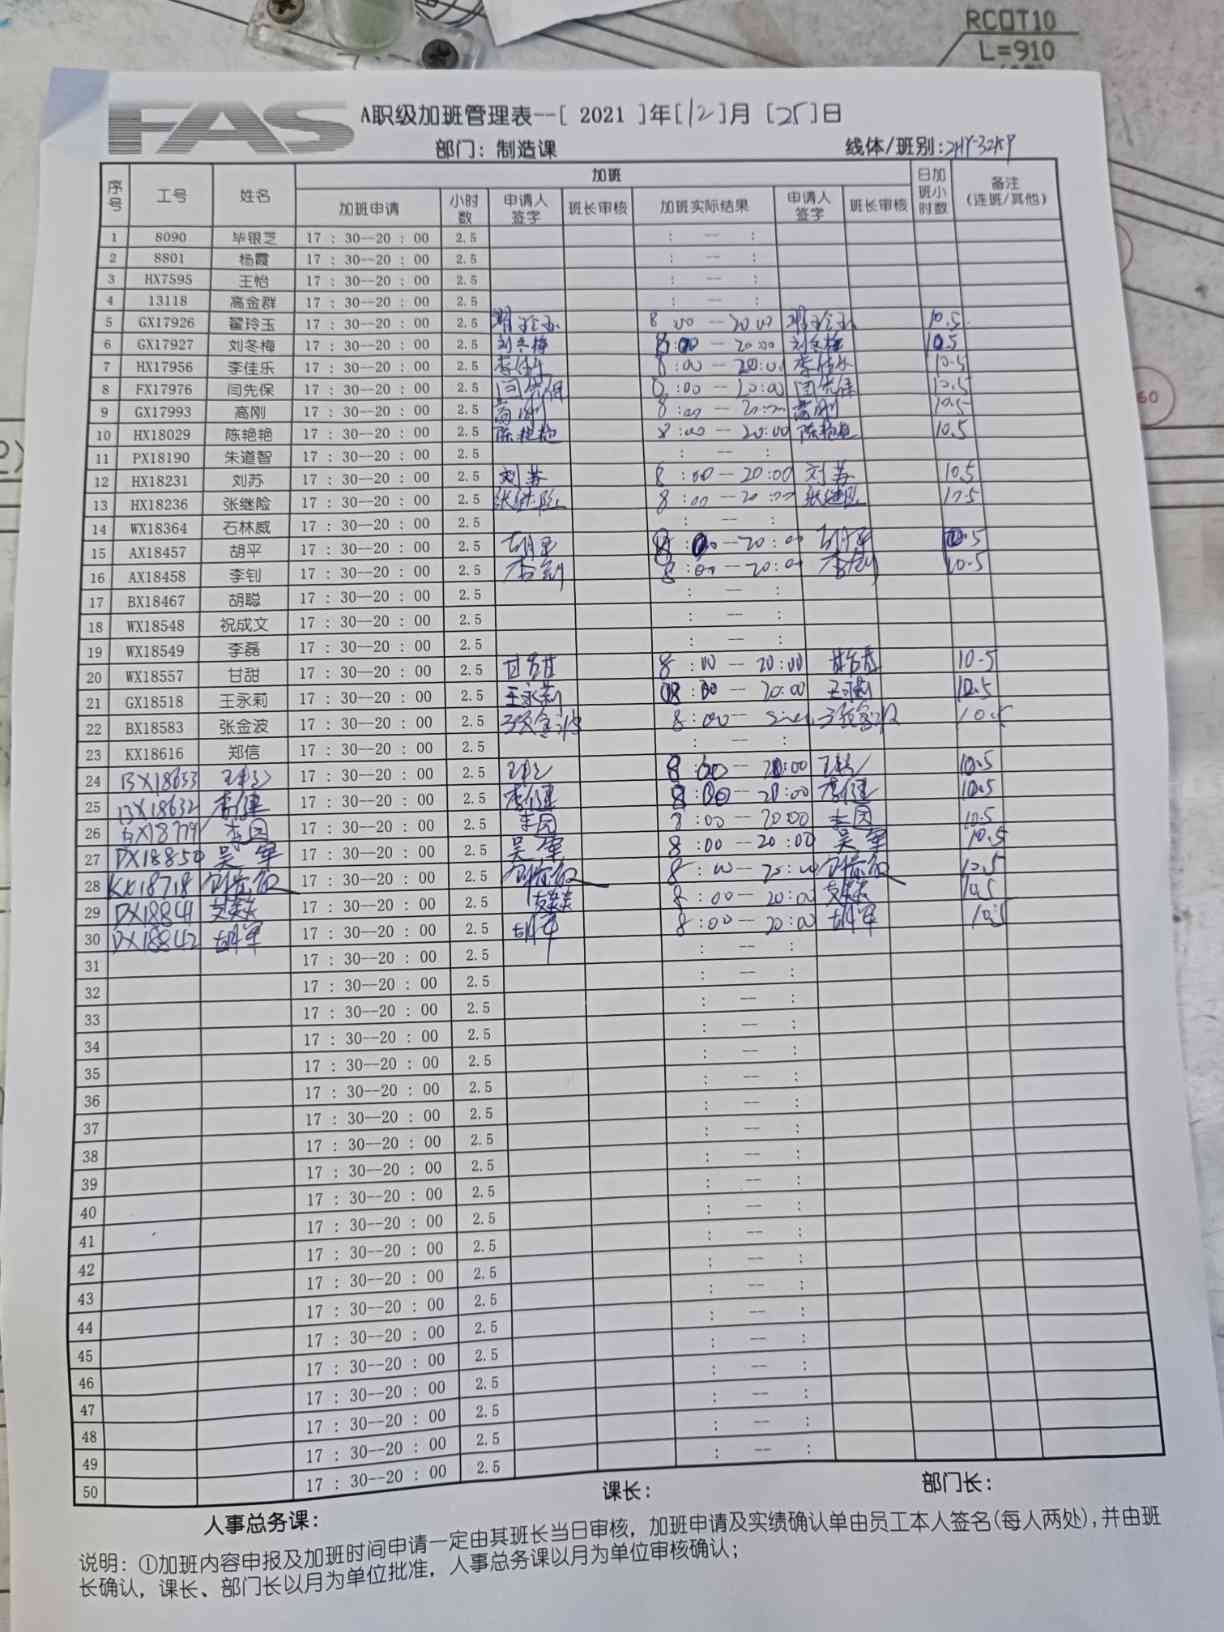 RCOT10
L=910
FAS
A职级加班管理表--[ 2021 ]年[12]月 [25]日
部门: 制造课 线体/班别:
序号 工号 姓名 加班 日加班小时数 备注(连班/其他)
加班申请 小时数 申请人签字 班长审核 加班实际结果 申请人签字 班长审核
1 8090 毕银芝 17 : 30--20 : 00 2.5 : -- :
2 8801 杨霞 17 : 30--20 : 00 2.5 : -- :
3 HX7595 王怡 17 : 30--20 : 00 2.5 : -- :
4 13118 高金群 17 : 30--20 : 00 2.5 : -- :
5 GX17926 翟玲玉 17 : 30--20 : 00 2.5 翟玲玉 8 00 -- 20 00 翟玲玉 10.5
6 GX17927 刘冬梅 17 : 30--20 : 00 2.5 刘冬梅 8:00 -- 20:00 刘冬梅 10.5
7 HX17956 李佳乐 17 : 30--20 : 00 2.5 李佳乐 8:00 -- 20:00 李佳乐 10.5
8 FX17976 闫先保 17 : 30--20 : 00 2.5 闫先保 8:00 -- 20:00 闫先保 10.5
9 GX17993 高刚 17 : 30--20 : 00 2.5 高刚 8:00 -- 20:00 高刚 10.5
10 HX18029 陈艳艳 17 : 30--20 : 00 2.5 陈艳艳 8:00 -- 20:00 陈艳艳 10.5
11 PX18190 朱道智 17 : 30--20 : 00 2.5 : -- :
12 HX18231 刘苏 17 : 30--20 : 00 2.5 刘苏 8:00 -- 20:00 刘苏 10.5
13 HX18236 张继险 17 : 30--20 : 00 2.5 张继险 8:00 -- 20:00 张继险 10.5
14 WX18364 石林威 17 : 30--20 : 00 2.5 : -- :
15 AX18457 胡平 17 : 30--20 : 00 2.5 胡平 8:00 -- 20:00 胡平 10.5
16 AX18458 李钊 17 : 30--20 : 00 2.5 李钊 8:00 -- 20:00 李钊 10.5
17 BX18467 胡聪 17 : 30--20 : 00 2.5 : -- :
18 WX18548 祝成文 17 : 30--20 : 00 2.5 : -- :
19 WX18549 李磊 17 : 30--20 : 00 2.5 : -- :
20 WX18557 甘甜 17 : 30--20 : 00 2.5 甘甜 8:00 -- 20:00 甘甜 10.5
21 GX18518 王永莉 17 : 30--20 : 00 2.5 王永莉 08:00 -- 20:00 王永莉 10.5
22 BX18583 张金波 17 : 30--20 : 00 2.5 张金波 8:00 -- 张金波 10.5
23 KX18616 郑信 17 : 30--20 : 00 2.5 : -- :
24 BX18633 17 : 30--20 : 00 2.5 8:00 -- 20:00 10.5
25 BX18632 李健 17 : 30--20 : 00 2.5 李健 8:00 -- 20:00 李健 10.5
26 李园 17 : 30--20 : 00 2.5 李园 8:00 -- 20:00 李园 10.5
27 DX18850 吴军 17 : 30--20 : 00 2.5 吴军 8:00 -- 20:00 吴军 10.5
28 KX18718 17 : 30--20 : 00 2.5 8:00 -- 20:00 10.5
29 DX18841 17 : 30--20 : 00 2.5 8:00 -- 20:00 10.5
30 DX18842 胡军 17 : 30--20 : 00 2.5 胡军 8:00 -- 20:00 胡军 10.5
31 17 : 30--20 : 00 2.5 : -- :
32 17 : 30--20 : 00 2.5 : -- :
33 17 : 30--20 : 00 2.5 : -- :
34 17 : 30--20 : 00 2.5 : -- :
35 17 : 30--20 : 00 2.5 : -- :
36 17 : 30--20 : 00 2.5 : -- :
37 17 : 30--20 : 00 2.5 : -- :
38 17 : 30--20 : 00 2.5 : -- :
39 17 : 30--20 : 00 2.5 : -- :
40 17 : 30--20 : 00 2.5 : -- :
41 17 : 30--20 : 00 2.5 : -- :
42 17 : 30--20 : 00 2.5 : -- :
43 17 : 30--20 : 00 2.5 : -- :
44 17 : 30--20 : 00 2.5 : -- :
45 17 : 30--20 : 00 2.5 : -- :
46 17 : 30--20 : 00 2.5 : -- :
47 17 : 30--20 : 00 2.5 : -- :
48 17 : 30--20 : 00 2.5 : -- :
49 17 : 30--20 : 00 2.5 : -- :
50 17 : 30--20 : 00 2.5 : -- :
人事总务课: 课长: 部门长:
说明: ①加班内容申报及加班时间申请一定由其班长当日审核, 加班申请及实绩确认单由员工本人签名(每人两处), 并由班
长确认, 课长、部门长以月为单位批准, 人事总务课以月为单位审核确认;
60